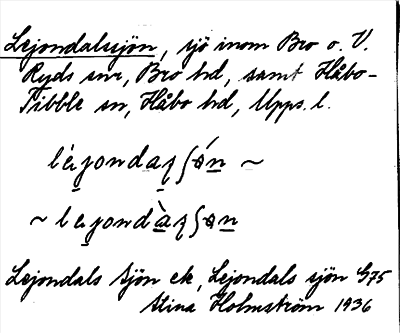 Lejondalssjön, sjö inom Bro o. V.
Ryds snr, Bro hd, samt Håbo-
Tibble sn, Håbo hd, Upps. l.
~
~
Lejondals Sjön ek, Lejondals sjön G75
Stina Holmström 1936